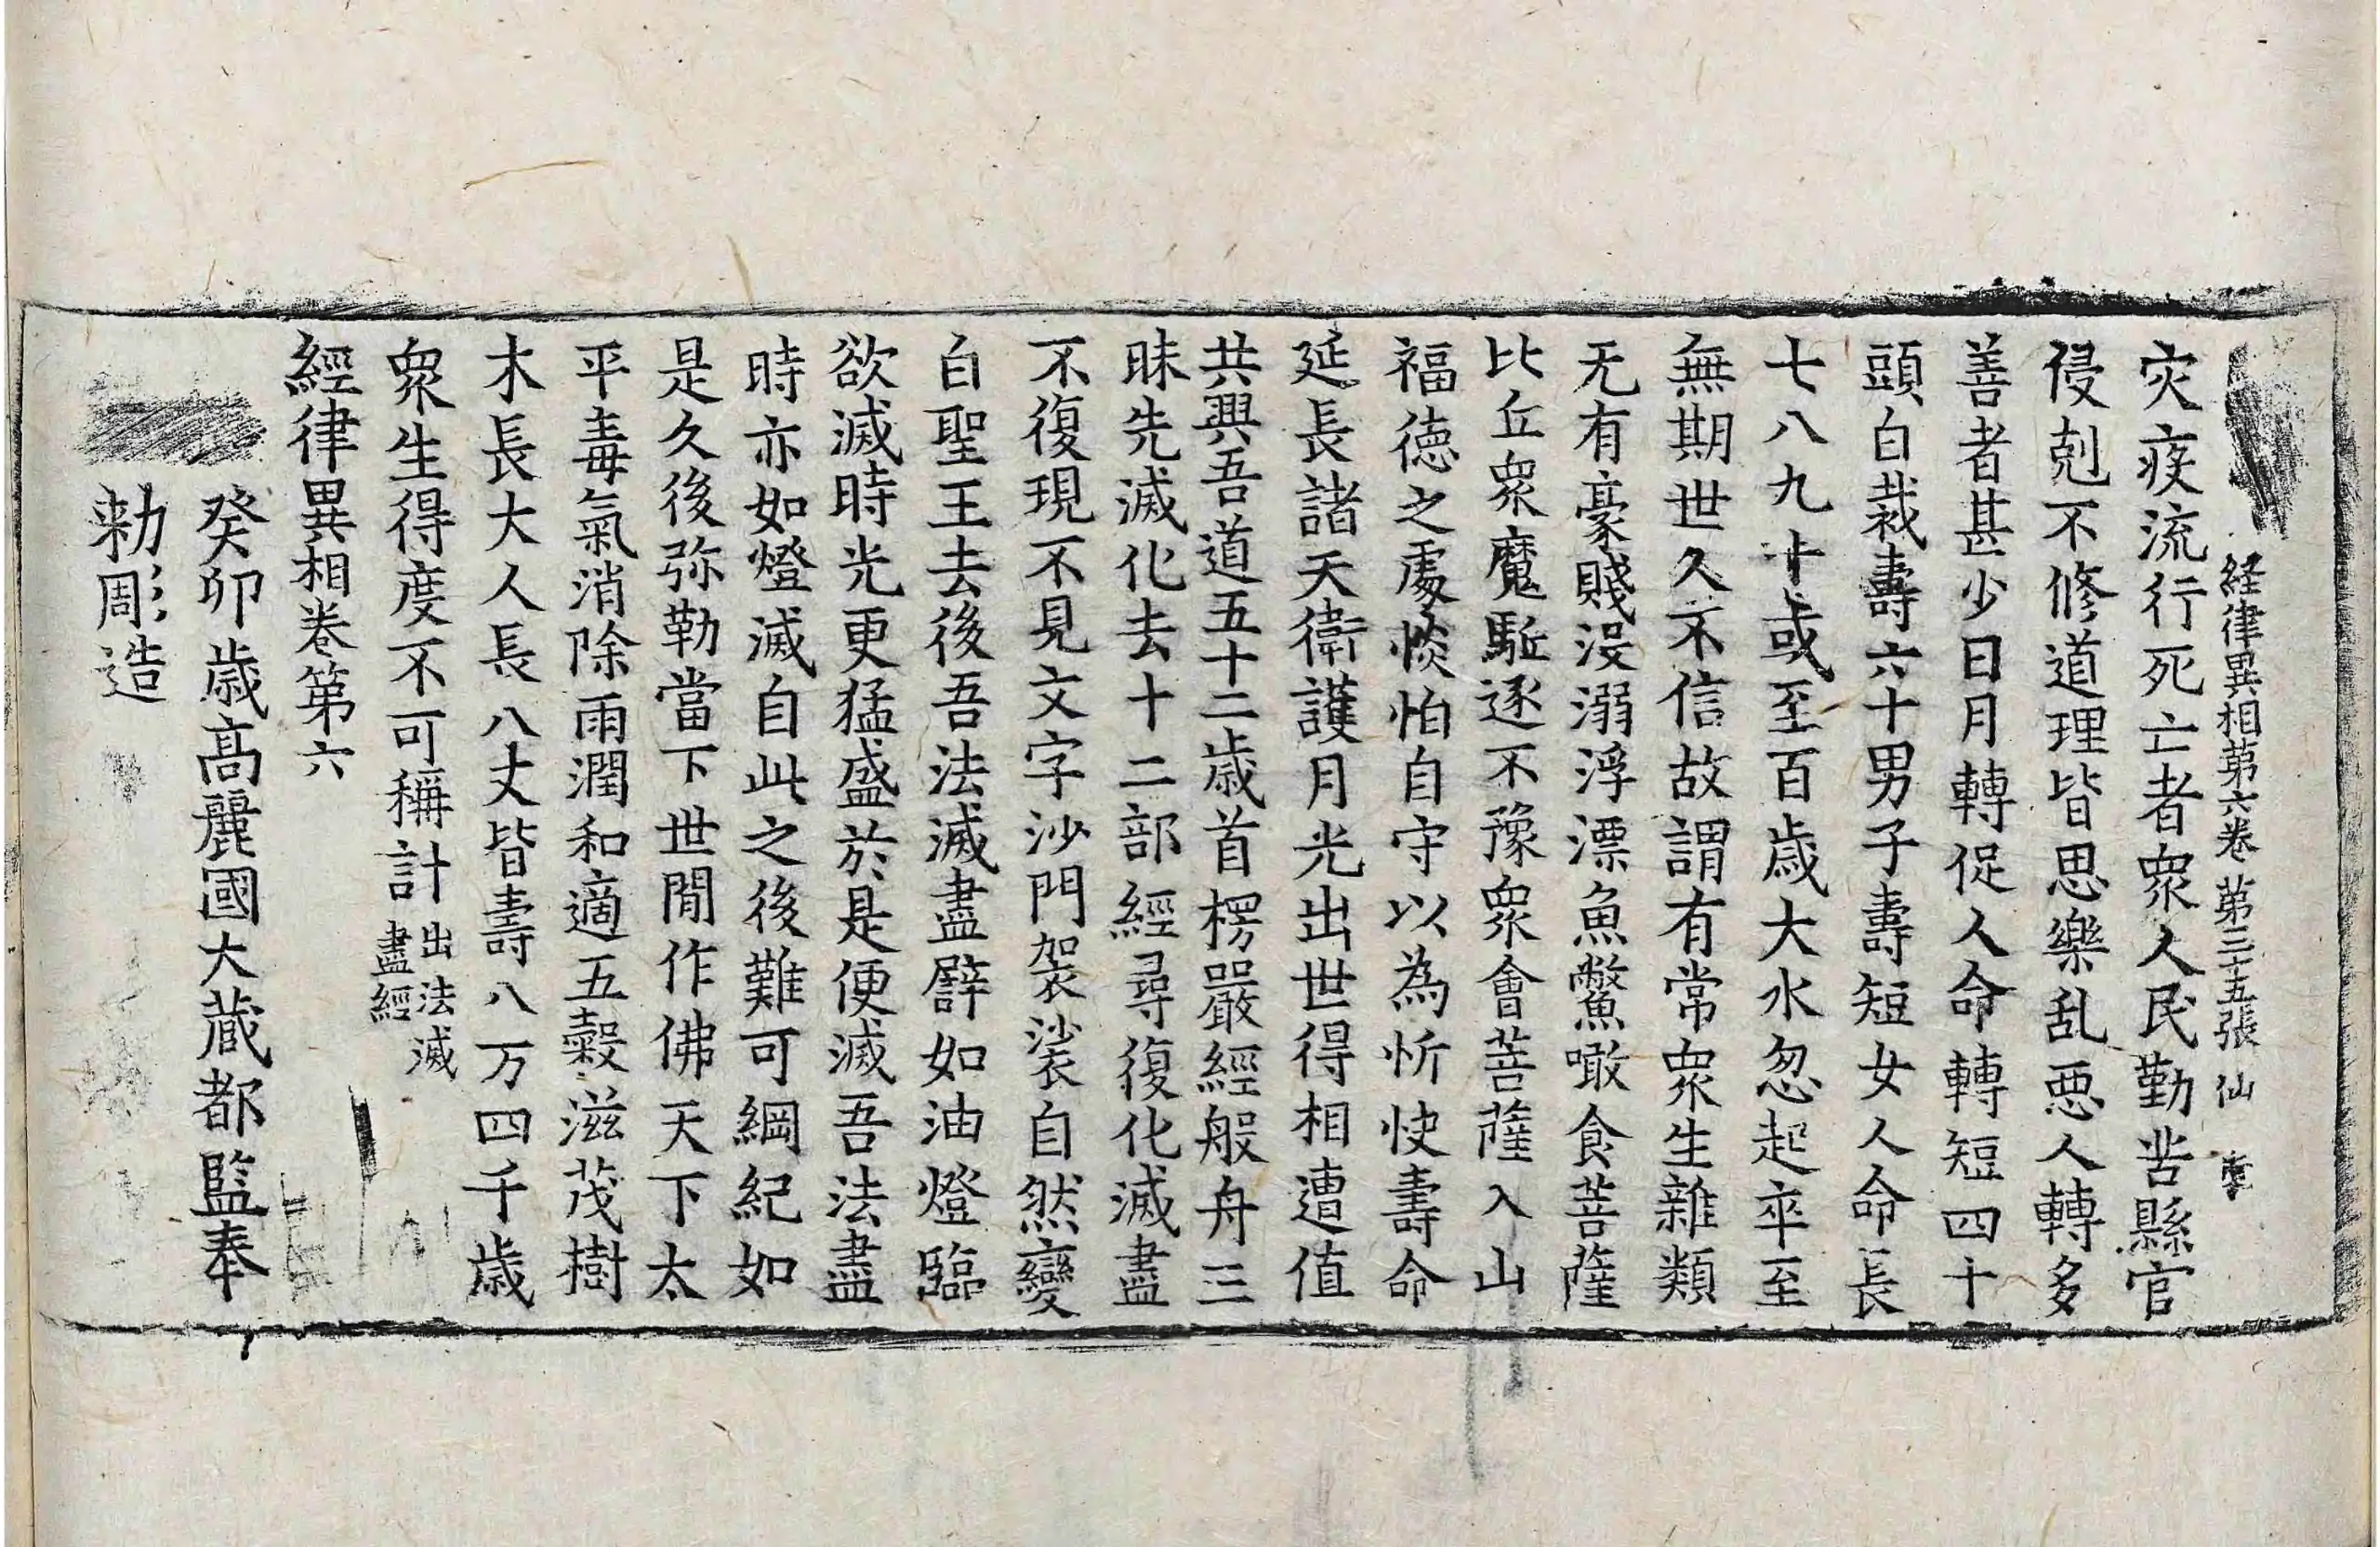 経律異相第六卷 第三十五張 仙
灾疾流行死亡者衆人民勤苦縣官
侵剋不修道理皆思樂乱惡人轉多
善者甚少日月轉促人命轉短四十
頭白裁壽六十男子壽短女人命長
七八九十或至百歲大水忽起卒至
無期世久不信故謂有常衆生雜類
无有豪賤没溺浮漂魚鱉噉食菩薩
比丘衆魔駈逐不豫衆會菩薩入山
福徳之處惔怕自守以為忻快壽命
延長諸天衛護月光出世得相遭值
共興吾道五十二歲首楞嚴經般舟三
昧先滅化去十二部經尋復化滅盡
不復現不見文字沙門袈裟自然變
白聖王去後吾法滅盡譬如油燈臨
欲滅時光更猛盛於是便滅吾法盡
時亦如燈滅自此之後難可綱紀如
是久後弥勒當下世間作佛天下太
平毒氣消除雨潤和適五穀滋茂樹
木長大人長八丈皆壽八万四千歲
衆生得度不可稱計 出法滅
盡經
經律異相卷第六
癸卯歲高麗國大藏都監奉
勅彫造